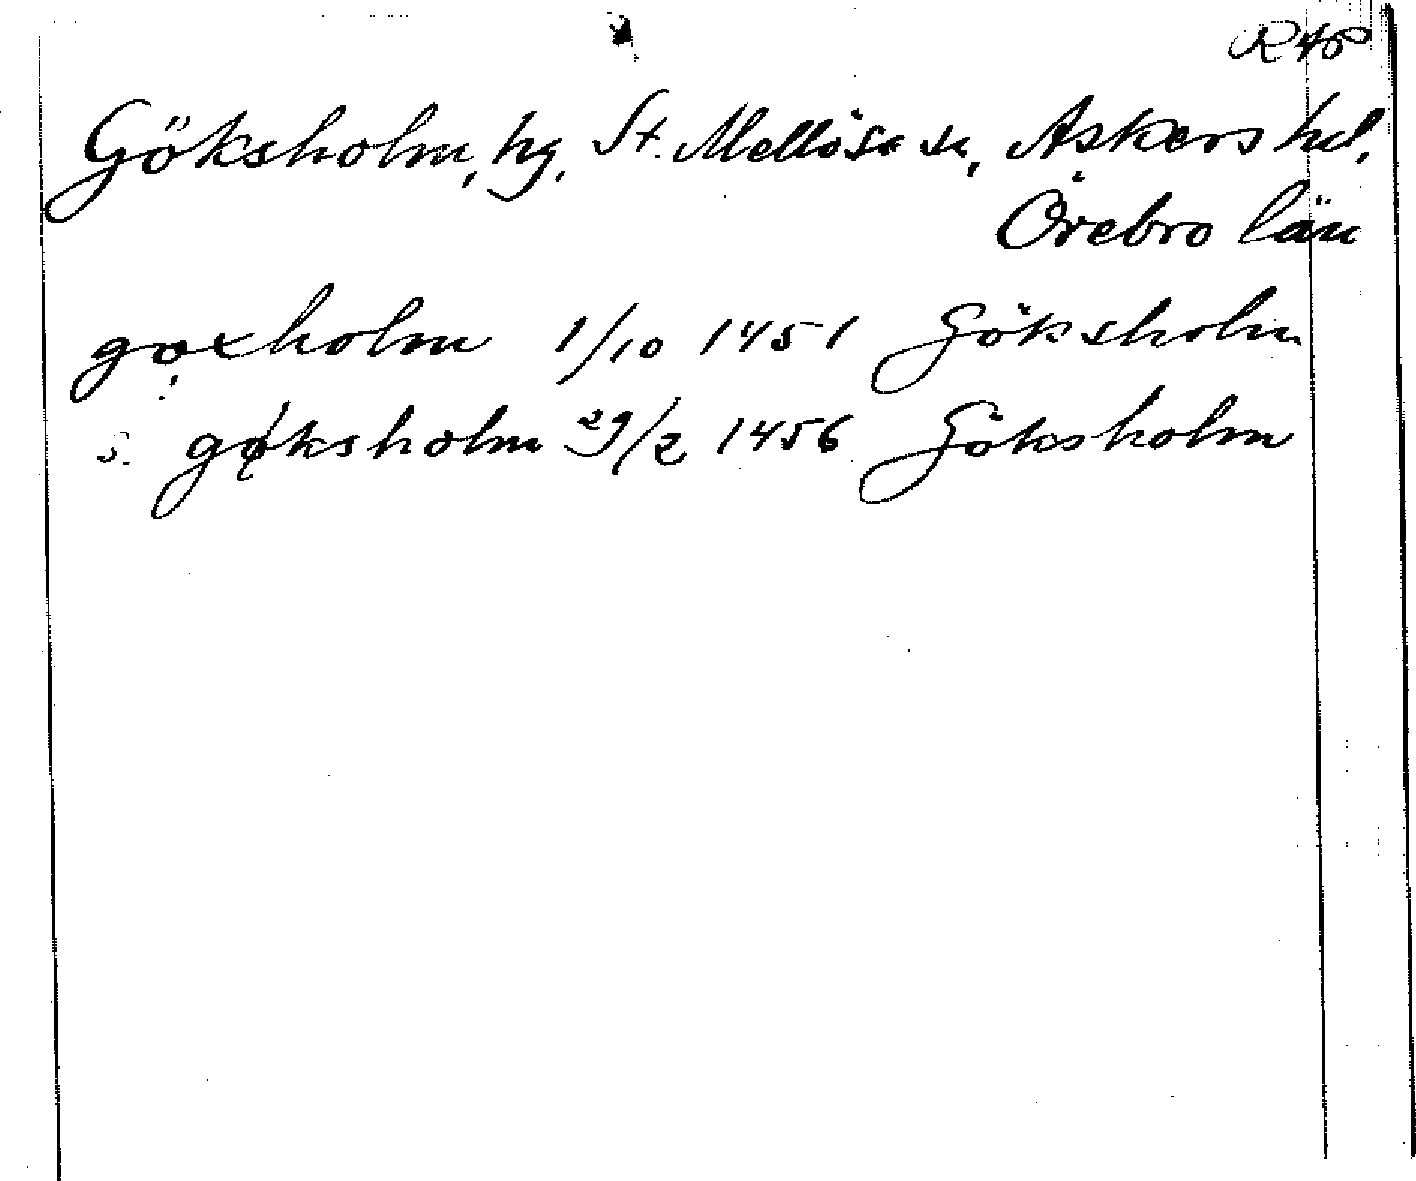 Göksholm, hg, St. Mellösa sn, Askers hd,
Örebro län
goxholm 1/10 1451 Göksholm
S. gøksholm 29/2 1456 Göksholm